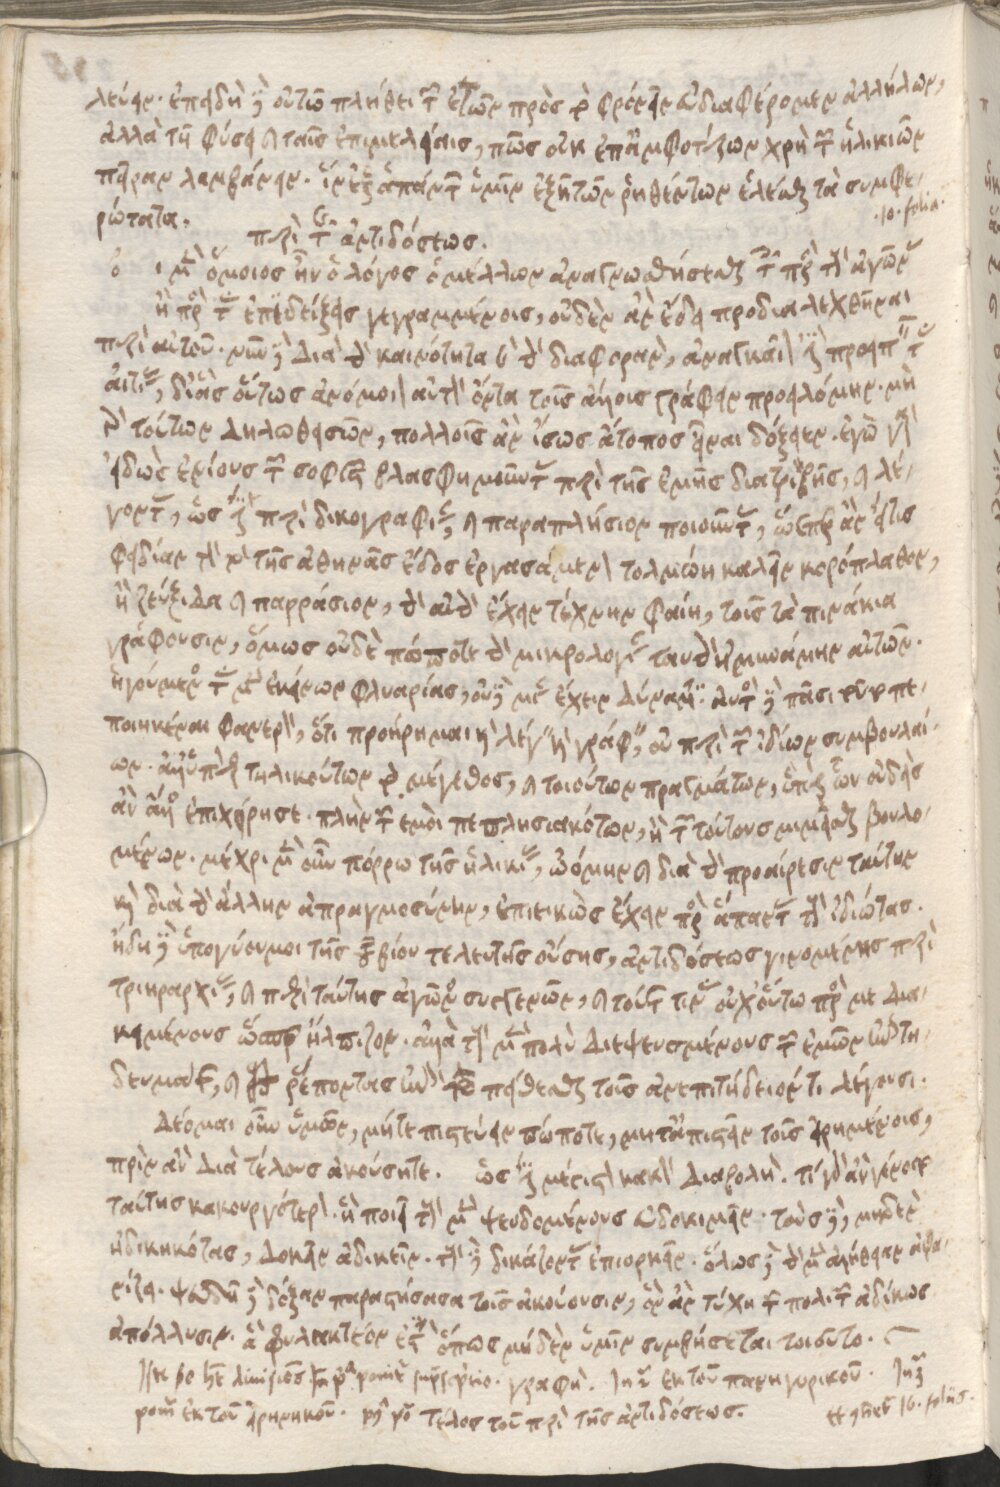 λεύειν· ἐπειδὴ δὲ οὐ τῶ πλήθει τῶν ἐτῶν πρὸς τὸ φρονεῖν εὖ διαφέρομεν ἀλλήλων,
ἀλλὰ τῇ φύσει καὶ ταῖς ἐπιμελείαις, πῶς οὐκ ἐπ' ἀμφοτέρων χρὴ τῶν ἡλικιῶν
πεῖραν λαμβάνειν· ἵν' ἐξ ἁπάντων ὑμῖν ἐξῇ τῶν ῥηθέντων ἑλέσθαι τὰ συμφο-
ρώτατα. .10. folia.
περὶ τῆς ἀντιδόσεως.
εἰ μὲν ὅμοιος ἦν ὁ λόγος ὁ μέλλων ἀναγνωσθήσεσθαι τοῖς πρὸς τοὺς ἀγῶνας
ἢ πρὸς τὰς ἐπιδείξεις γεγραμμένοις, οὐδὲν ἂν ἔδει προδιαλεχθῆναι
περὶ αὐτοῦ· νῦν δὲ διὰ τὴν καινότητα καὶ τὴν διαφορὰν, ἀναγκαῖον ἐστι προειπεῖν τὰς
αἰτίας, δι' ἃς οὕτως ἀνόμοιον αὐτὸν ὄντα τοῖς ἄλλοις γράφειν προειλόμην· μὴ
γὰρ τούτων δηλωθεισῶν, πολλοῖς ἂν ἴσως ἄτοπος εἶναι δόξειεν. ἐγὼ γὰρ
εἰδὼς ἐνίους τῶν σοφιστῶν βλασφημοῦντας περὶ τῆς ἐμῆς διατριβῆς, καὶ λέ-
γοντας, ὡς ἔστι περὶ δικογραφίαν, καὶ παραπλήσιον ποιοῦντας, ὥσπερ ἂν εἴ τις
φειδίαν τὸν τὸ τῆς ἀθηνᾶς ἕδος ἐργασάμενον τολμώη καλεῖν κοροπλάθον,
ἢ ζεῦξιν καὶ παρράσιον, τὴν αὐτὴν ἔχειν τέχνην φαίη, τοῖς τὰ πινάκια
γράφουσιν, ὅμως οὐδὲ πώποτε τὴν μικρολογίαν ταύτην ἠμυνάμην αὐτῶν.
ἡγούμενος τὰς μὲν ἐκείνων φλυαρίας, οὐδεμίαν ἔχειν δύναμιν· αὐτὸς δὲ πᾶσι τοῦτο πε-
ποιηκέναι φανερὸν, ὅτι προῄρημαι καὶ λέγειν καὶ γράφειν, οὐ περὶ τῶν ἰδίων συμβολαί-
ων· ἀλλ' ὑπὲρ τηλικούτων τὸ μέγεθος, καὶ τοιούτων πραγμάτων, ὑπὲρ ὧν οὐδεὶς
ἂν ἄλλος ἐπιχειρήσειε· πλὴν τῶν ἐμοὶ πεπλησιακότων, ἢ τῶν τούτους μιμεῖσθαι βουλο-
μένων. μέχρι μὲν οὖν πόρρω τῆς ἡλικίας, ᾠόμην καὶ διὰ τὴν προαίρεσιν ταύτην
καὶ διὰ τὴν ἄλλην ἀπραγμοσύνην, ἐπιεικῶς ἔχειν πρὸς ἅπαντας τοὺς ἰδιώτας.
ἤδη δὲ ὑπογύου μοι τῆς τοῦ βίου τελευτῆς οὔσης, ἀντιδόσεως γινομένης περὶ
τριηραρχίας, καὶ περὶ ταύτης ἀγῶνος συνέγνων, καὶ τούτων τινὰς οὐχ' οὕτω πρός με δια-
κειμένους ὥσπερ ἤλπιζον· ἀλλὰ τοὺς μὲν πολὺ διεψευσμένους τῶν ἐμῶν ἐπιτη-
δευμάτων, καὶ ῥέποντας ἐπὶ τὸ πείθεσθαι τοῖς ἀνεπιτήδειόν τι λέγουσι.
Δέομαι οὖν ὑμῶν, μήτε πιστεύειν πώποτε, μήτ' ἀπιστεῖν τοῖς εἰρημένοις,
πρὶν ἂν διὰ τέλους ἀκούσητε. ὡς ἔστι μέγιστον κακὸν διαβολή. τί γὰρ ἂν γένοιτο
ταύτης κακουργότερον· ἣ ποιεῖ τοὺς μὲν ψευδομένους εὐδοκιμεῖν· τοὺς δὲ, μηδὲν
ἠδικηκότας, δοκεῖν ἀδικεῖν· τοὺς δὲ δικάζοντας ἐπιορκεῖν· ὅλως δὲ τὴν μὲν ἀλήθειαν ἀφα-
νίζει· ψευδῆ δὲ δόξαν παραστήσασα τοῖς ἀκούουσιν, ὃν ἂν τύχη τῶν πολιτῶν ἀδίκως
ἀπόλλυσιν. ἃ φυλακτέον ἐστὶν ὅπως μηδὲν ὑμῖν συμβήσεται τοιοῦτο.
γραφή. ἐκ τοῦ πανηγυρικοῦ.
ἐκ τοῦ εἰρηνικοῦ. τέλος τοῦ περὶ τῆς ἀντιδόσεως. 16. foliis.